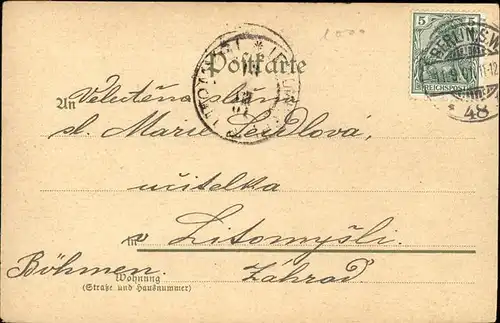 5 5
REICHSPOST
BERLIN S.W.
11.9.01. 11-12
48
Postkarte
An Velectěna slečna
sl. Marie Seidlová,
učitelka
in v Litomyšli.
Böhmen. Záhrad.
Wohnung
(Straße und Hausnummer)